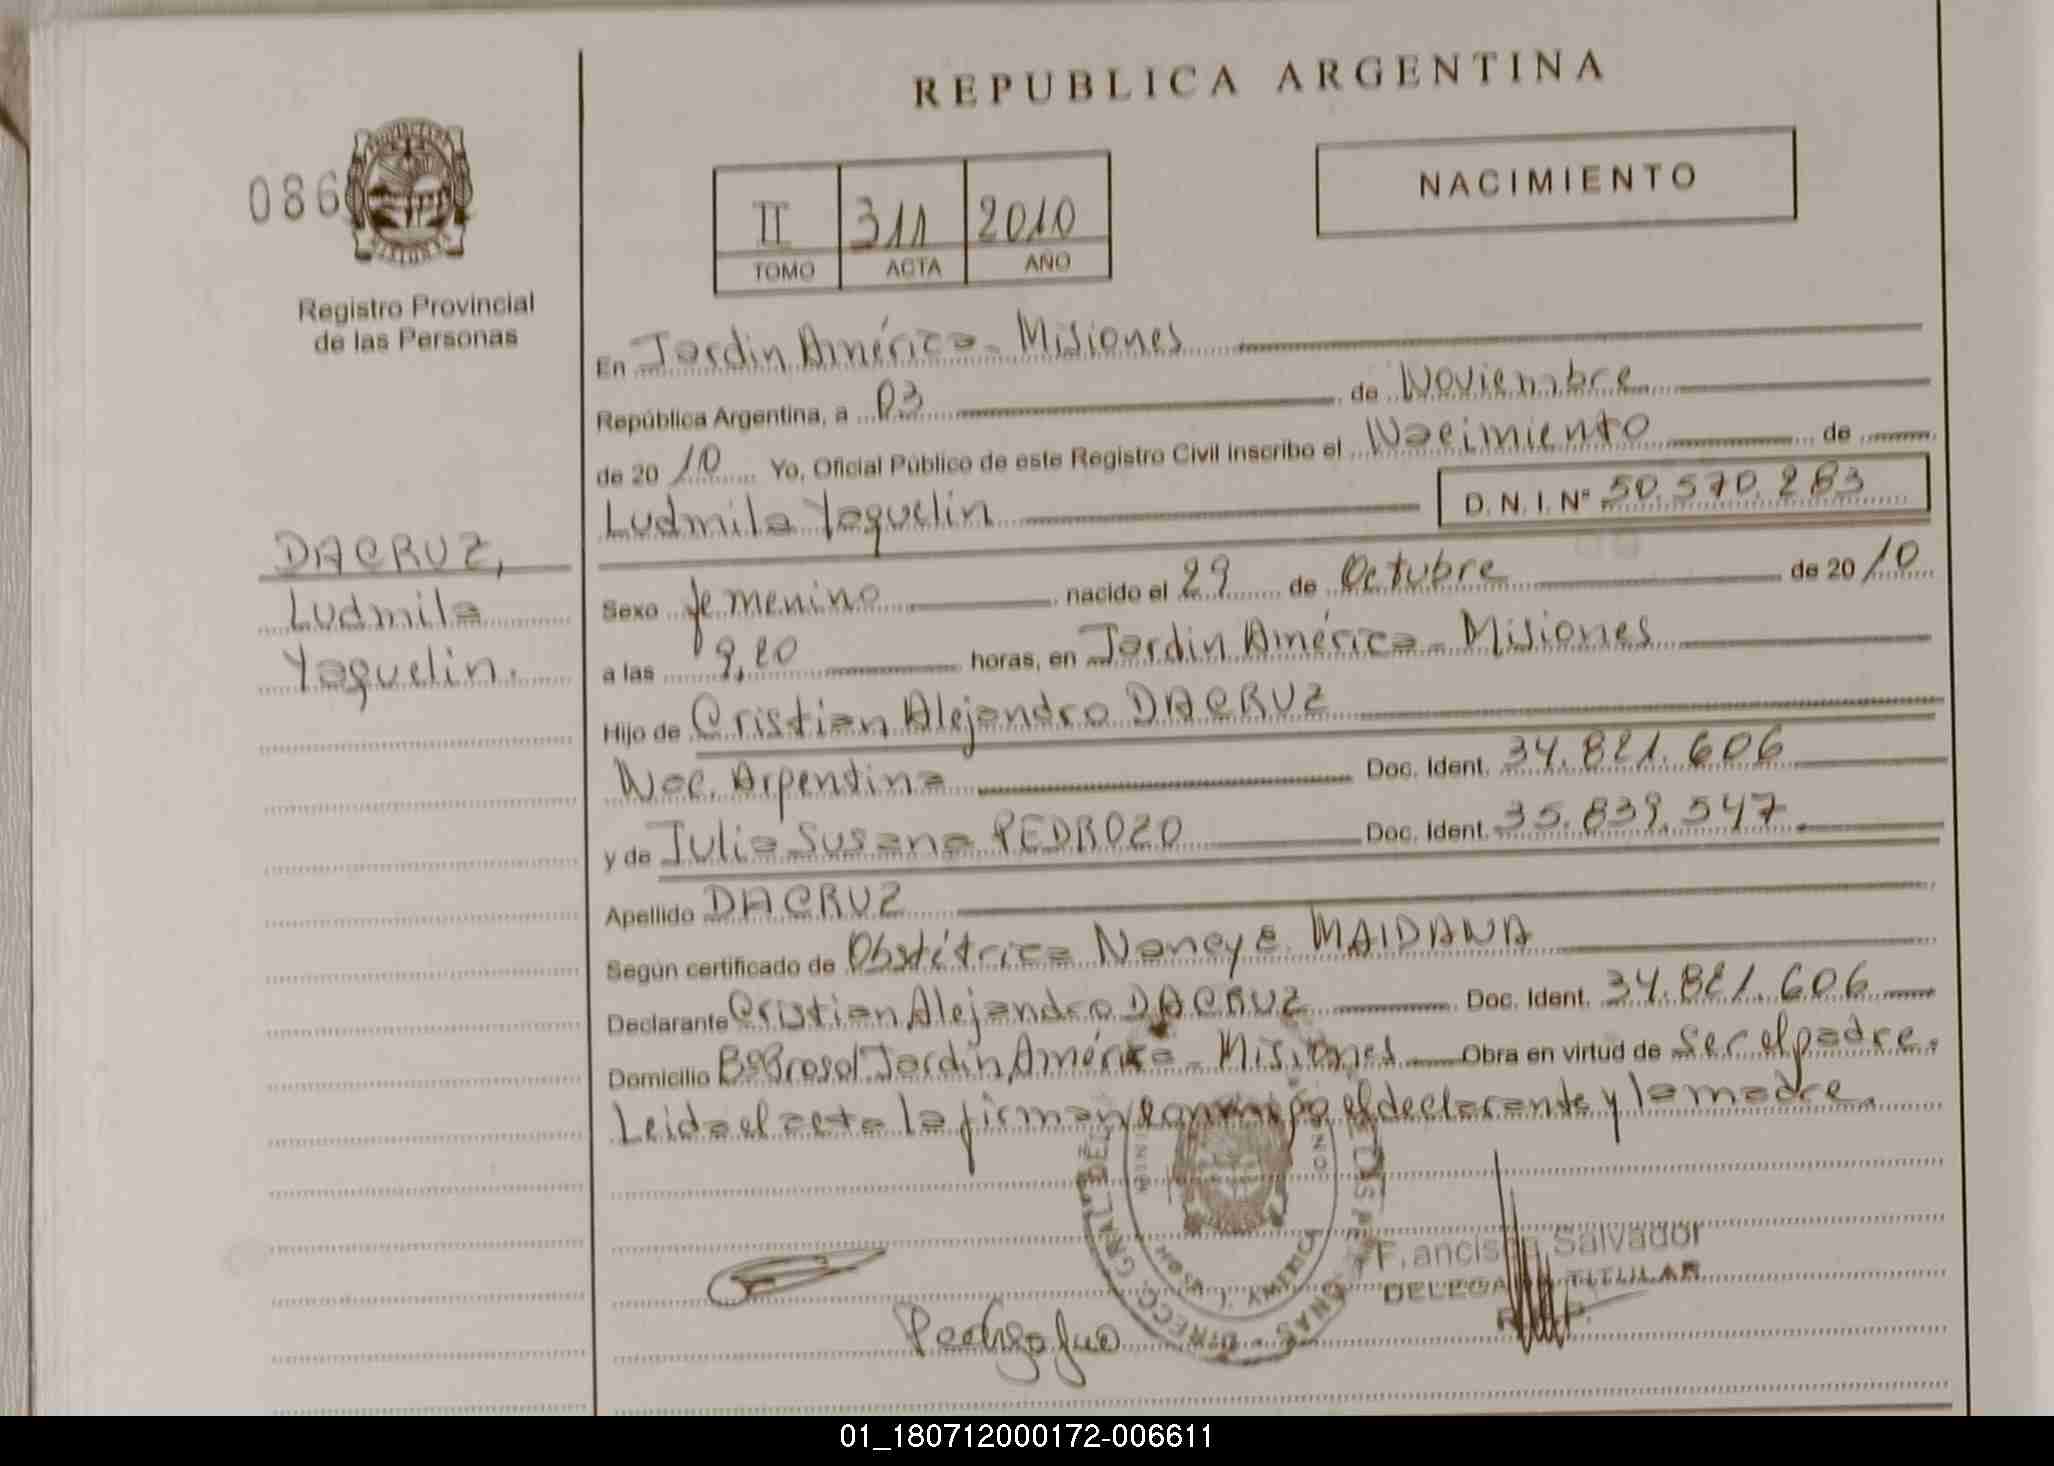 REPUBLICA ARGENTINA
086
NACIMIENTO
II 311 2010
TOMO ACTA AÑO
Registro Provincial
de las Personas
En Jardin América - Misiones
República Argentina, a 03 de Noviembre
de 20 10 Yo, Oficial Público de este Registro Civil inscribo el Nacimiento de
Ludmila Yaquelin D. N. I. Nº 50.570.283
DACRUZ,
Ludmila
Yaquelin.
Sexo femenino nacido el 29 de Octubre de 20 10
a las 9,20 horas, en Jardin América - Misiones
Hijo de Cristian Alejandro DACRUZ
Nac. Argentina Doc. Ident. 34.821.606
y de Julia Susana PEDROZO Doc. Ident. 35.839.547
Apellido DACRUZ
Según certificado de Obstétrica Nancy E. MAIDANA
Declarante Cristian Alejandro DACRUZ Doc. Ident. 34.821.606
Domicilio Bº Brasol Jardin América - Misiones Obra en virtud de ser el padre.
Leida el acta la firman conmigo el declarante y la madre.
DIRECC. GRAL. DEL
J. AMERICA
Salvador
TITULAR
01_180712000172-006611